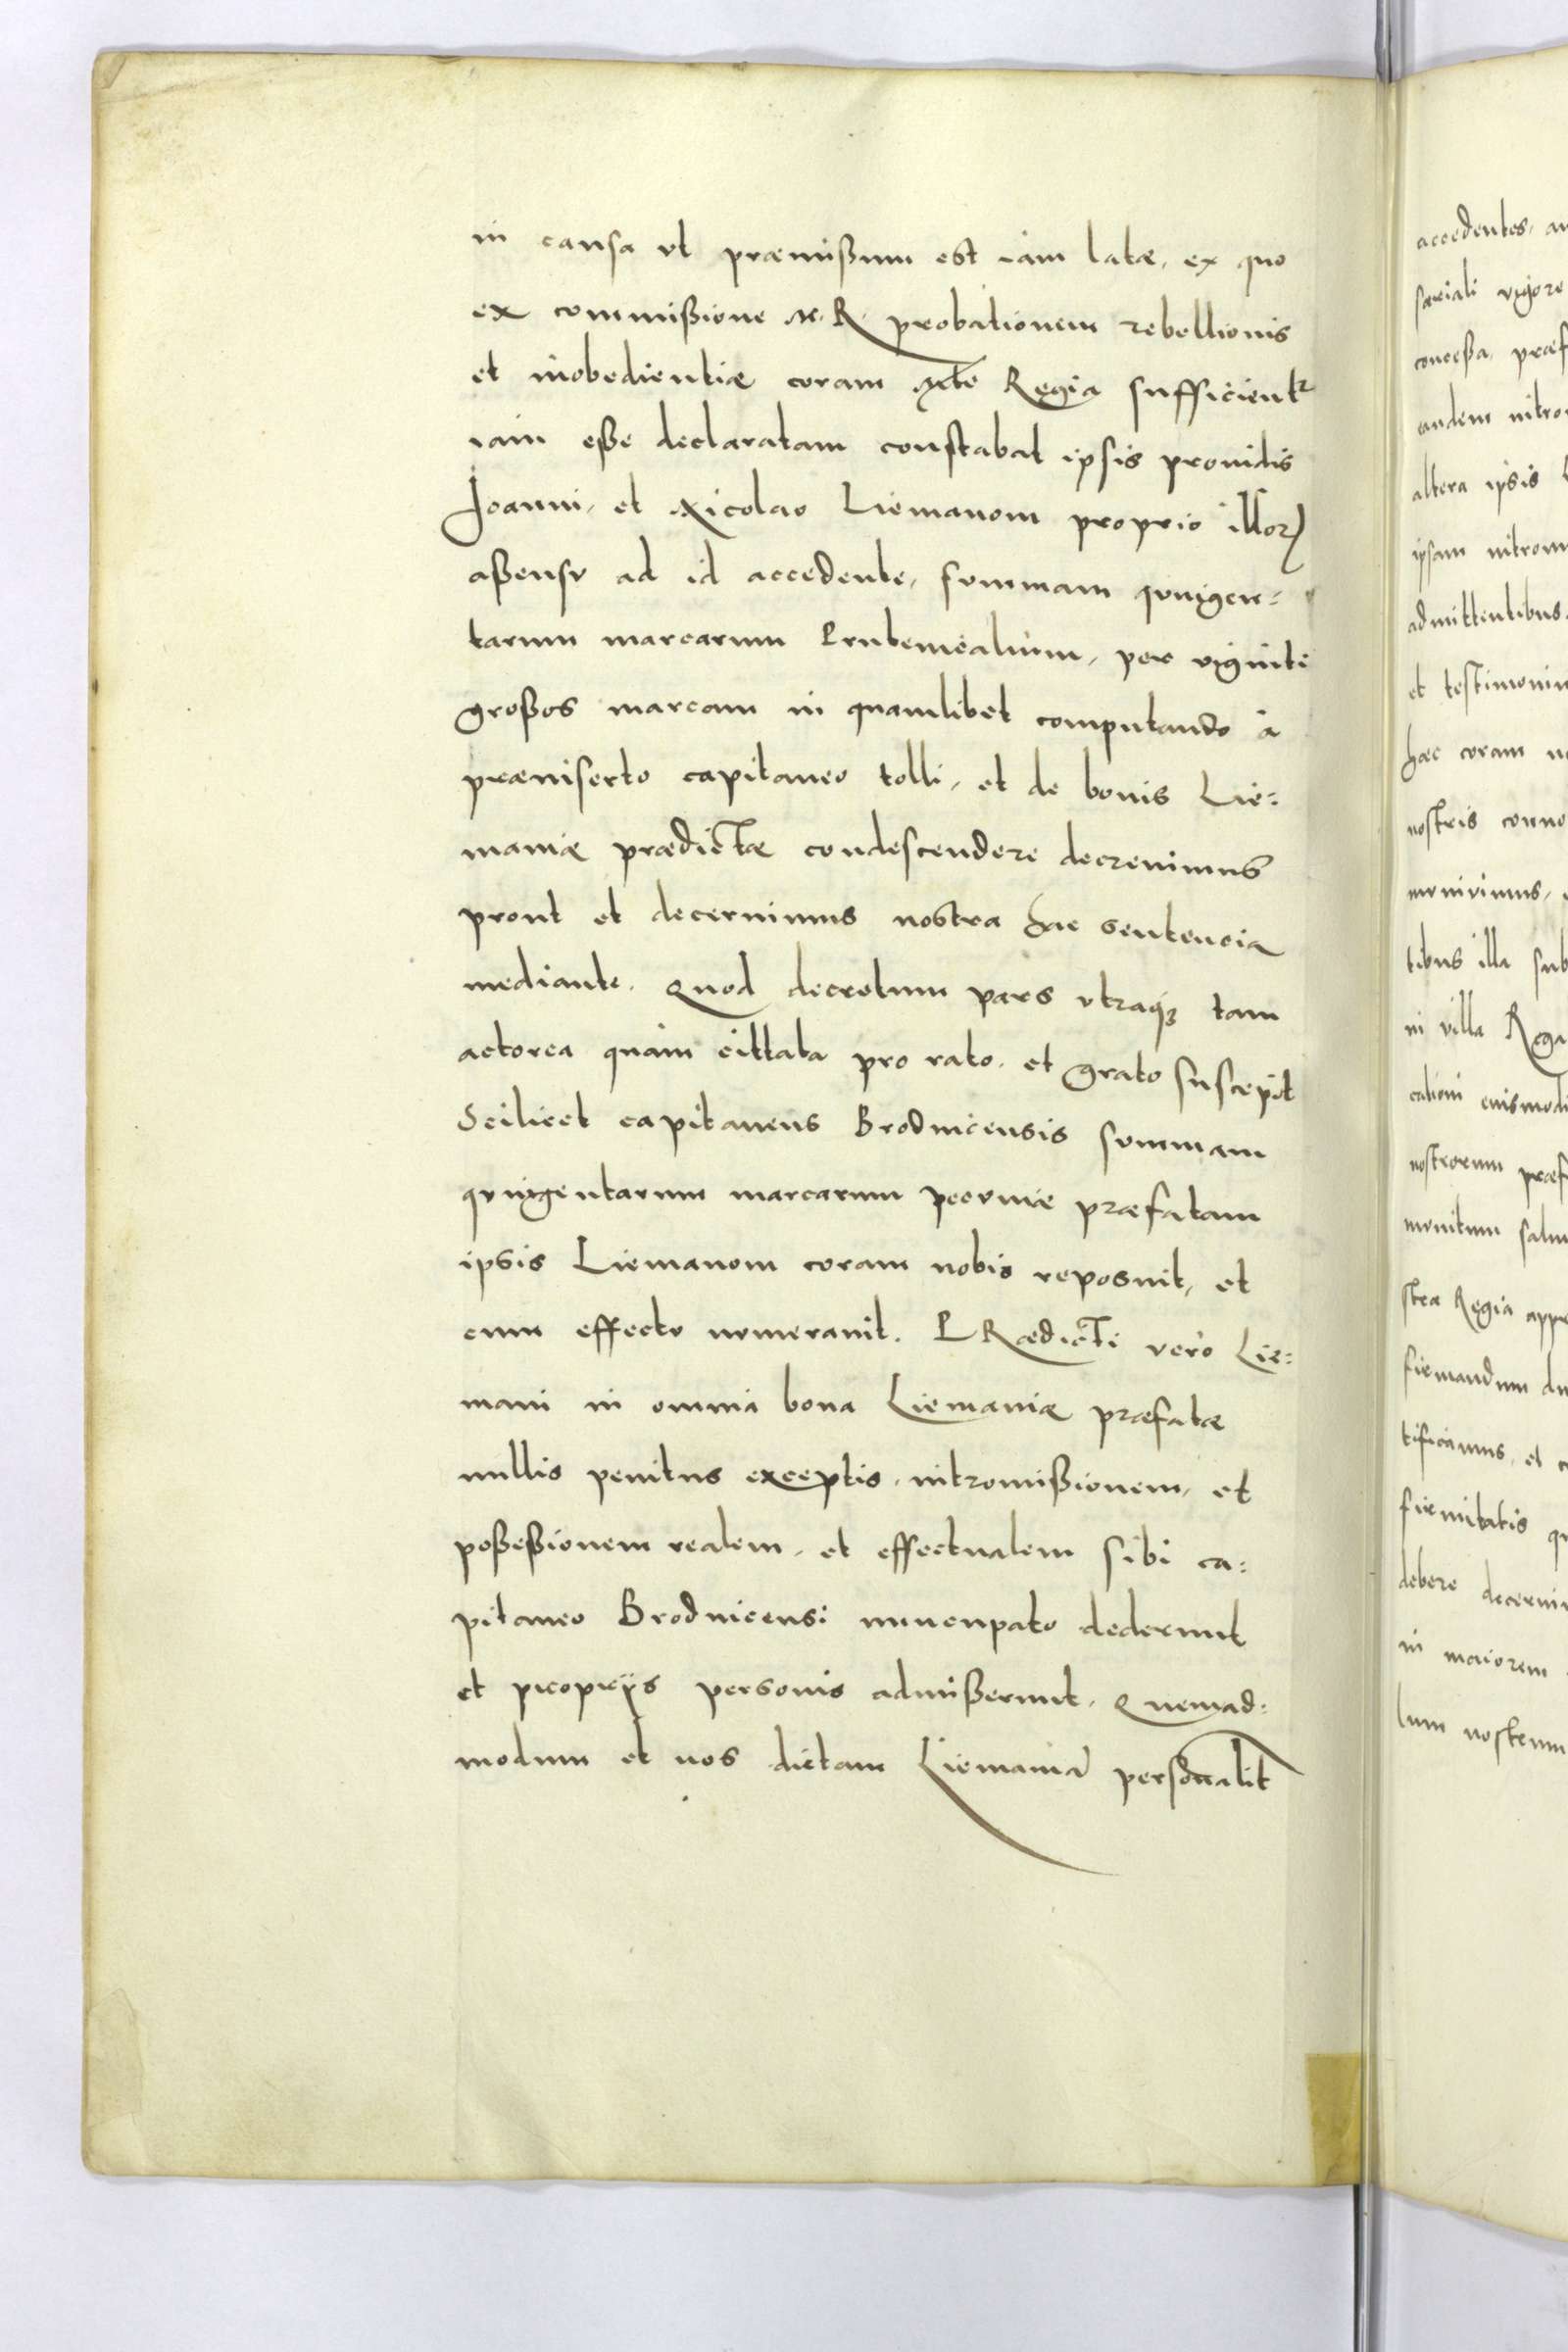 in causa vt præmißum est iam latæ, ex quo
ex commißione M. R. probationem rebellionis
et inobedientiæ coram Mte Regia sufficientr
iam eße declaratam constabat ipsis prouidis
Joanni, et Nicolao Liemanom proprio illor
aßensv ad id accedente, svmmam qvingen=
tarum marcarum Prutenicalium, per viginti
großos marcam in quamlibet computando à
præinserto capitaneo tolli, et de bonis Lie=
maniæ prædictæ condescendere decreuimus
prout et decernimus nostra hac sentencia
mediante. Quod decretum pars vtraqȝ tam
actorea quàm cittata pro rato, et grato suscepit
Scilicet capitaneus Brodnicensis svmmam
qvingentarum marcarum pecvniæ præfatam
ipsis Liemanom coram nobis reposuit, et
cum effectv nvmerauit. PRædicti verò Lie=
mani in omnia bona Liemaniæ præfatæ
nullis penitus exceptis, intromißionem, et
poßeßionem realem, et effectualem sibi ca=
pitaneo Brodnicensi nuncupato dederunt
et proprijs personis admißerunt. Quemad=
modum et nos dictam Liemaniã personalit
accedentes,
vigore
conceßa, præf
altera ipsis
admittentibus
et testimoniu
hæc coram
nostris
tibus illa sub
in villa Rega
nostrorum præf
stra Regia
firmandum
tificamus, et
firmitatis
debere
in maiorem
lum nostrum